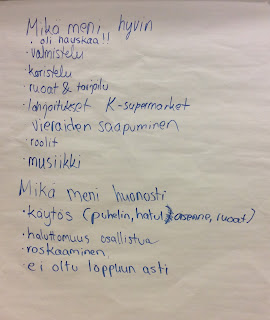 Mikä meni hyvin
• oli hauskaa!!
• valmistelu
• koristelu
• ruoat & tarjoilu
• lahjoitukset K-supermarket
vieraiden saapuminen
• roolit
• musiikki
Mikä meni huonosti
• käytös (puhelin, hatut, asenne, ruoat)
• haluttomuus osallistua
• roskaaminen
• ei oltu loppuun asti